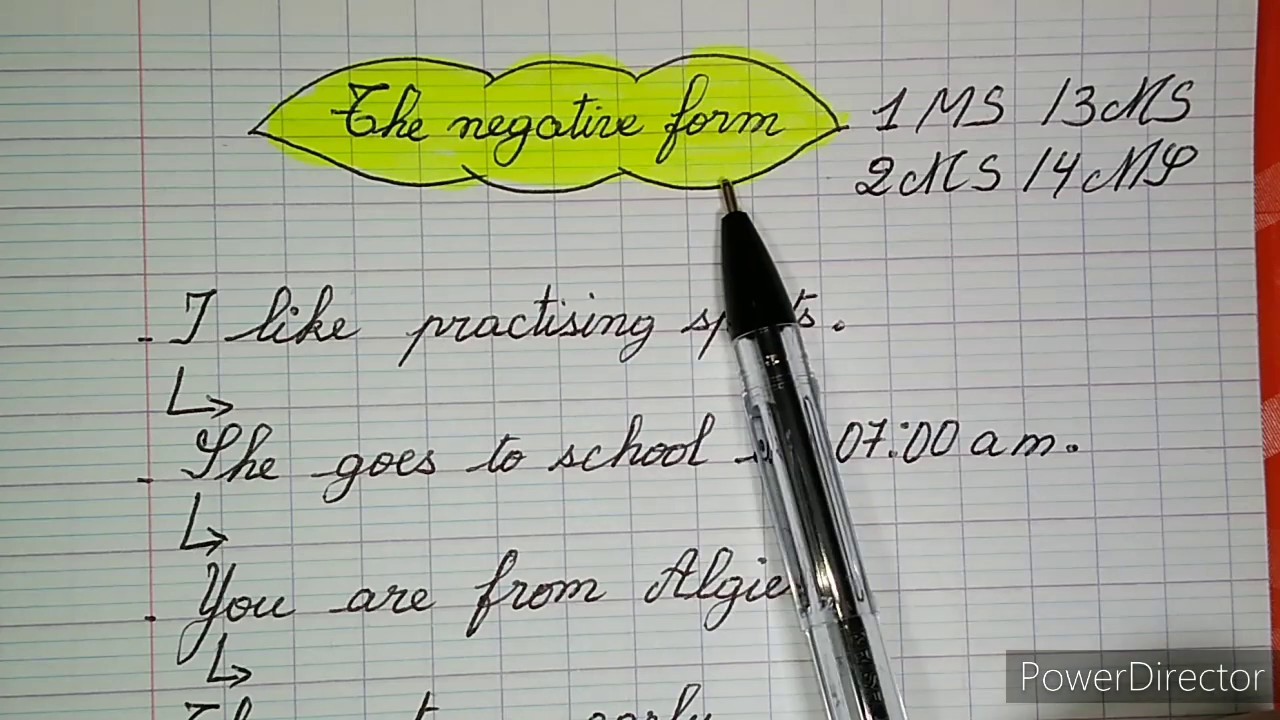 The negative form
1 MS / 3MS
2MS / 4MS
- I like practising
- She goes to school 07:00 am.
- You are from
early
PowerDirector